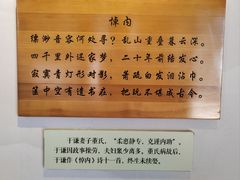 悼内
缥渺音容何处寻？乱山重叠暮云深。
四千里外还家梦，二十年前结发心。
寂寞青灯形对影，萧疏白发泪沾巾。
箧中空有遗书在，把玩不堪成古今。
于谦妻子董氏，“柔惠静专、克谨内助”。
于谦因政事操劳，夫妇聚少离多。董氏病故后，
于谦作《悼内》诗十一首，终生未续娶。